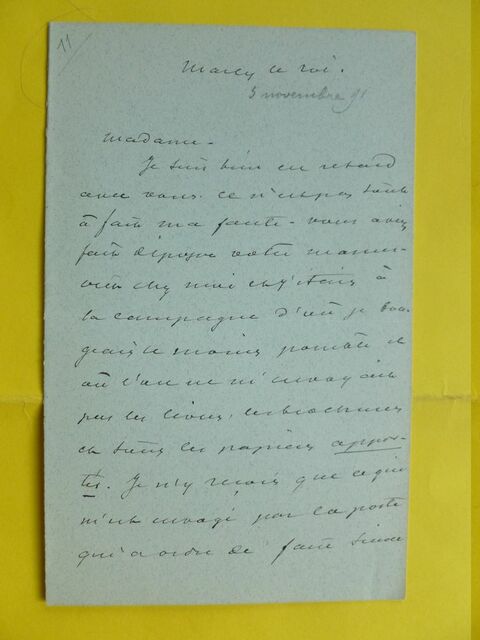 11
Marly le roi.
5 novembre 91
Madame -
Je suis bien en retard
avec vous. Ce n'est pas tout
à fait ma faute - vous aviez
fait déposer votre manus-
crit chez moi et j'étais à
la campagne d'où je bou-
geais le moins possible et
où l'on ne m'envoyait
pas les livres, les brochures
et tous les papiers appor-
tés. Je n'y reçois que ce qui
m'est envoyé par la poste
qui a ordre de faire suivre